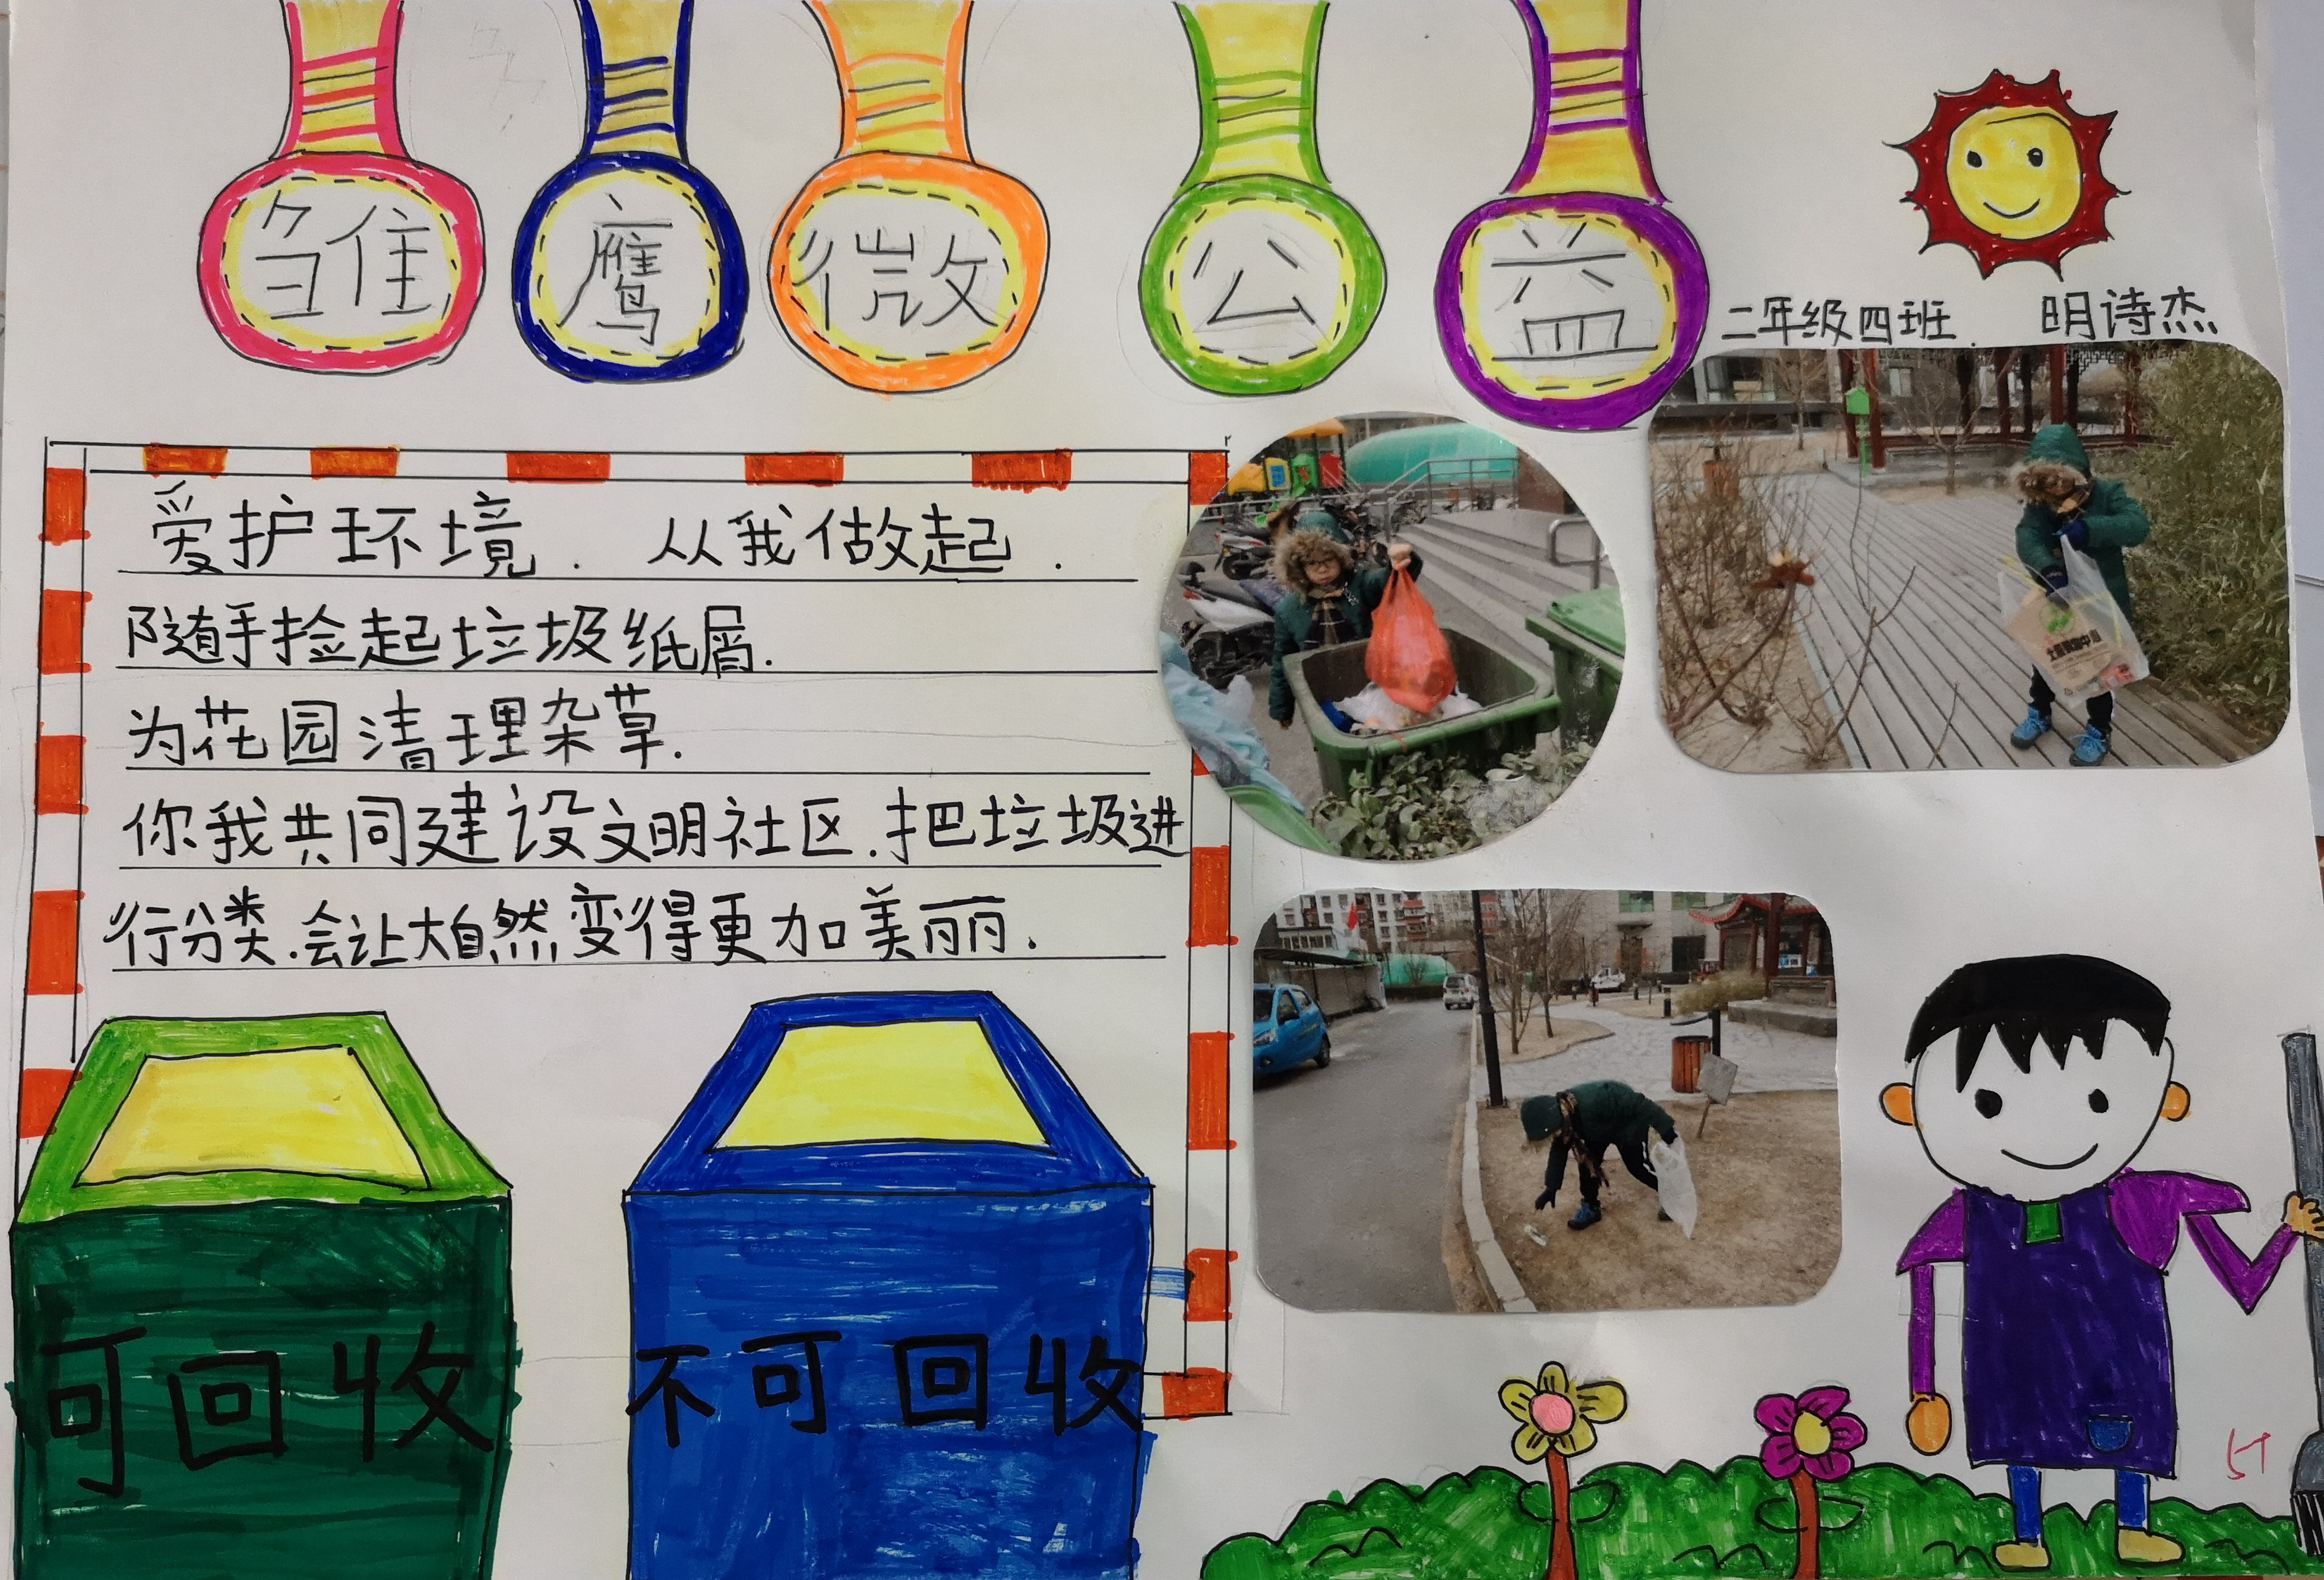 雏鹰微公益
二年级四班. 明诗杰
爱护环境. 从我做起.
随手捡起垃圾纸屑.
为花园清理杂草.
你我共同建设文明社区. 把垃圾进
行分类. 会让大自然变得更加美丽.
可回收
不可回收